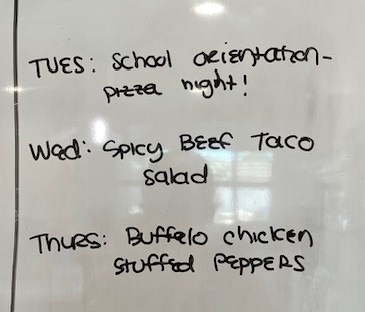 TUES: School orientation-
pizza night!
Wed: Spicy Beef Taco
salad
Thurs: Buffalo chicken
stuffed PEPPERS